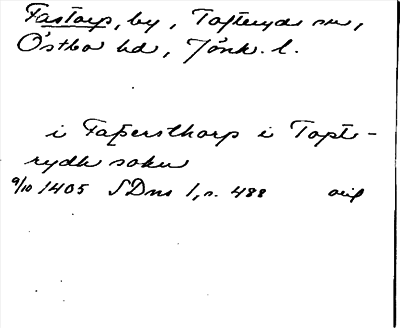 Fastarp, by, Tofteryds sn,
Östbo hd, Jönk. l.
i Faþersthorp i Tofte-
rydh sokn
9/10 1405 SDns 1, s. 488 orig